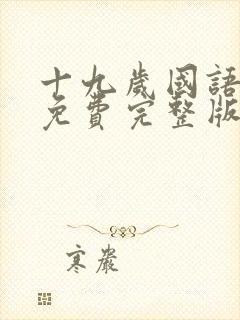 十九歲國語
免費完整版
寒巖